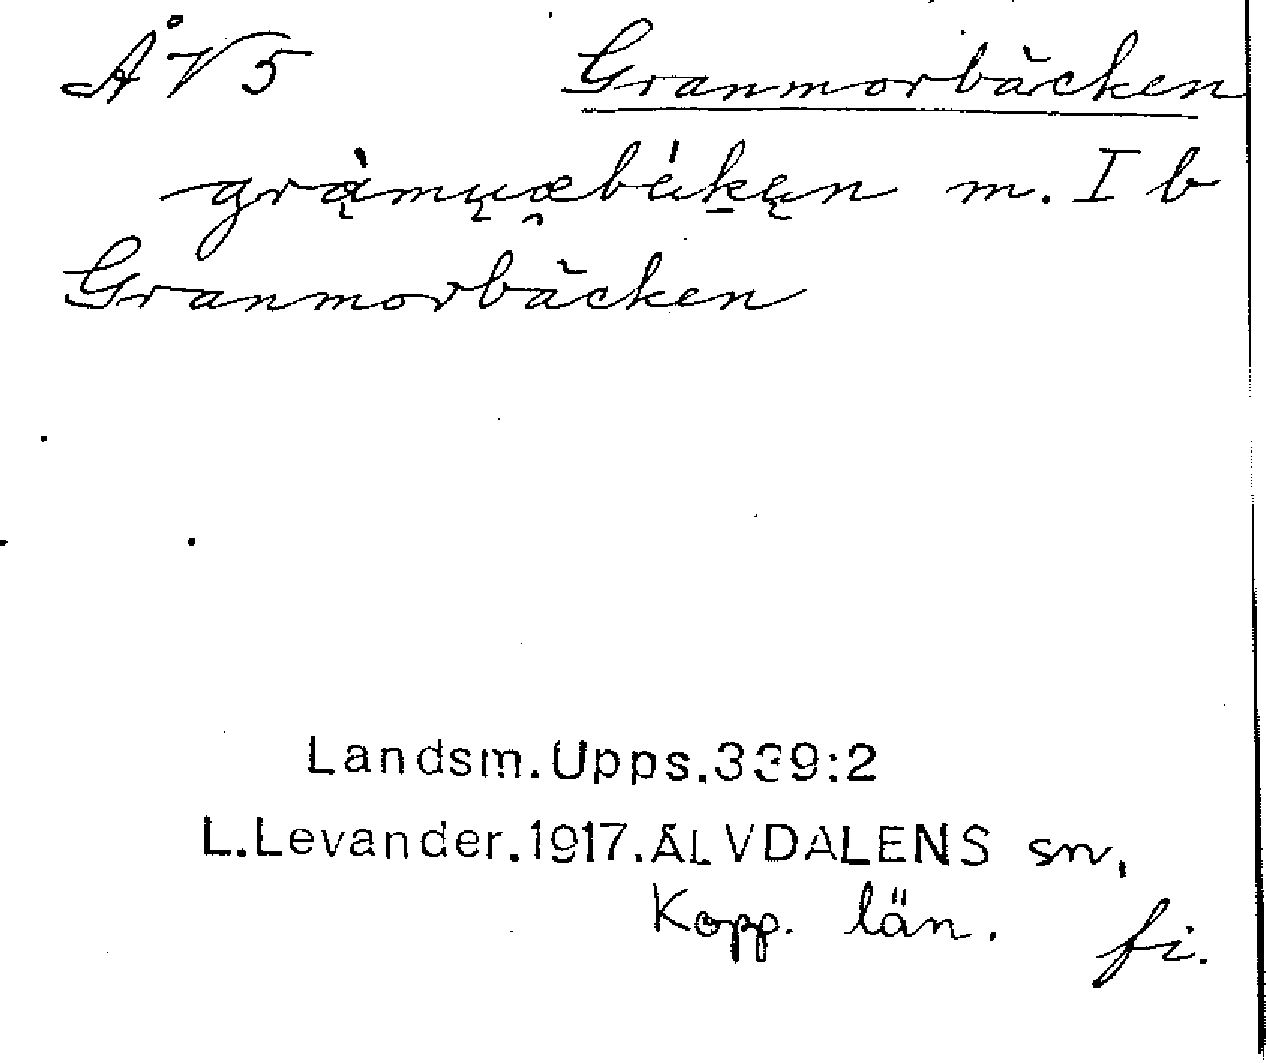 ÅV5 Granmorbäcken
m. I b
Granmorbäcken
Landsm.Upps.339:2
L.Levander.1917.ÄLVDALENS sn,
Kopp. län. fi.